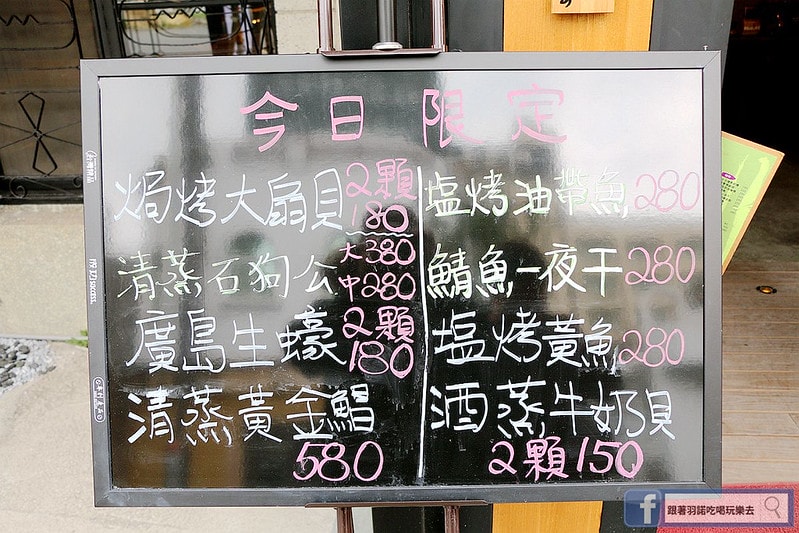 今日限定
焗烤大扇貝 2顆 180
清蒸石狗公 大380 中280
廣島生蠔 2顆 180
清蒸黃金鯧 580
塩烤油帶魚 280
鯖魚一夜干 280
塩烤黃魚 280
酒蒸牛奶貝 2顆150
跟著羽諾吃喝玩樂去